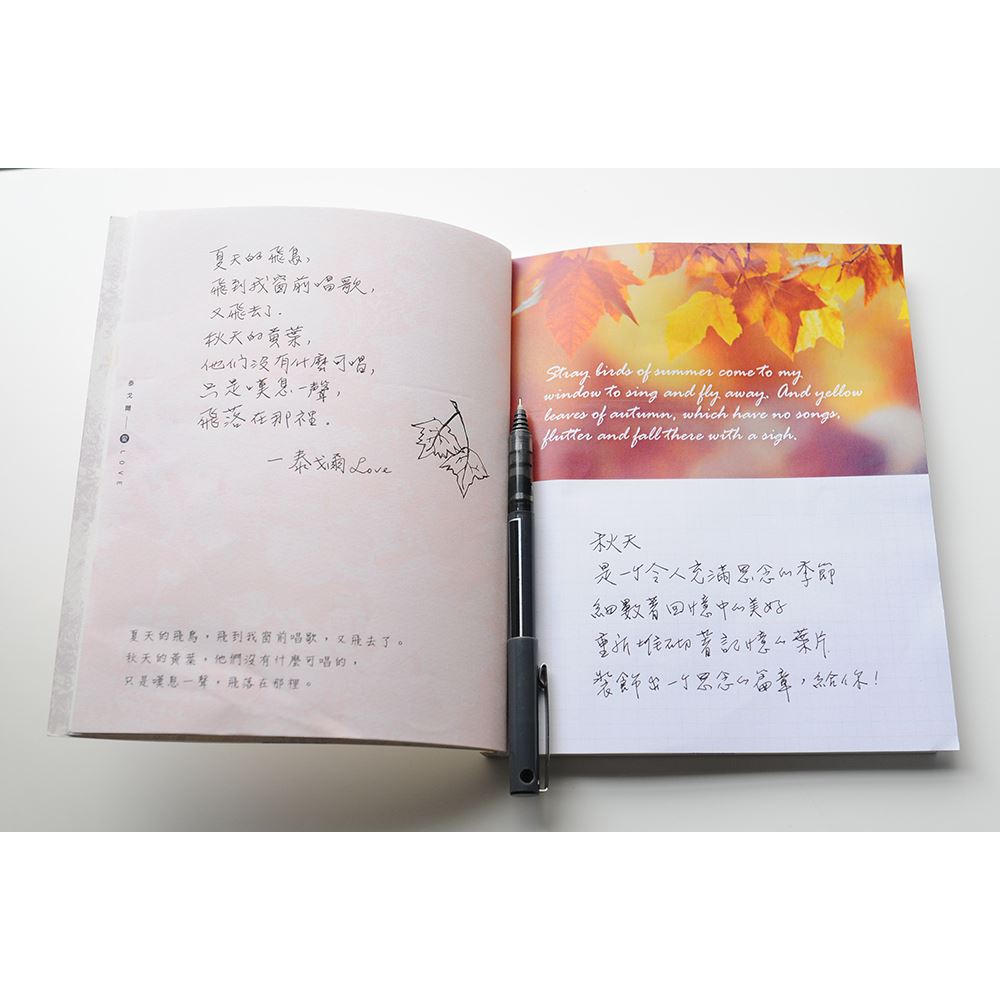 夏天的飛鳥,
飛到我窗前唱歌,
又飛去了.
秋天的黃葉,
他们沒有什麼可唱,
只是嘆息一聲,
飛落在那裡。
一泰戈爾Love
泰戈爾——@LOVE
夏天的飛鳥，飛到我窗前唱歌，又飛去了。
秋天的黃葉，他們沒有什麼可唱的，
只是嘆息一聲，飛落在那裡。
Stray birds of summer come to my
window to sing and fly away. And yellow
leaves of autumn, which have no songs,
flutter and fall there with a sigh.
秋天
是一个令人充滿思念的季節
細數著回憶中的美好
重新堆砌著記憶的葉片
裝飾出一个思念的篇章，給你!